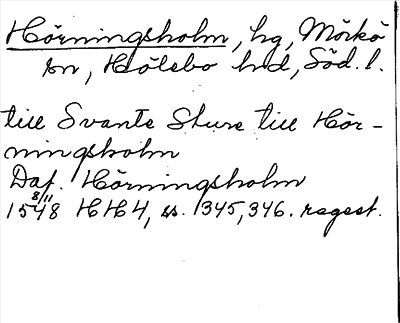 Hörningsholm, hg, Mörkö
sn, Hölebo hd, Söd. l.
till Svante Sture till Hör-
ningsholm
Daf. Hörningsholm
8/11
1548 HH4, ss. 1345, 346. regest.